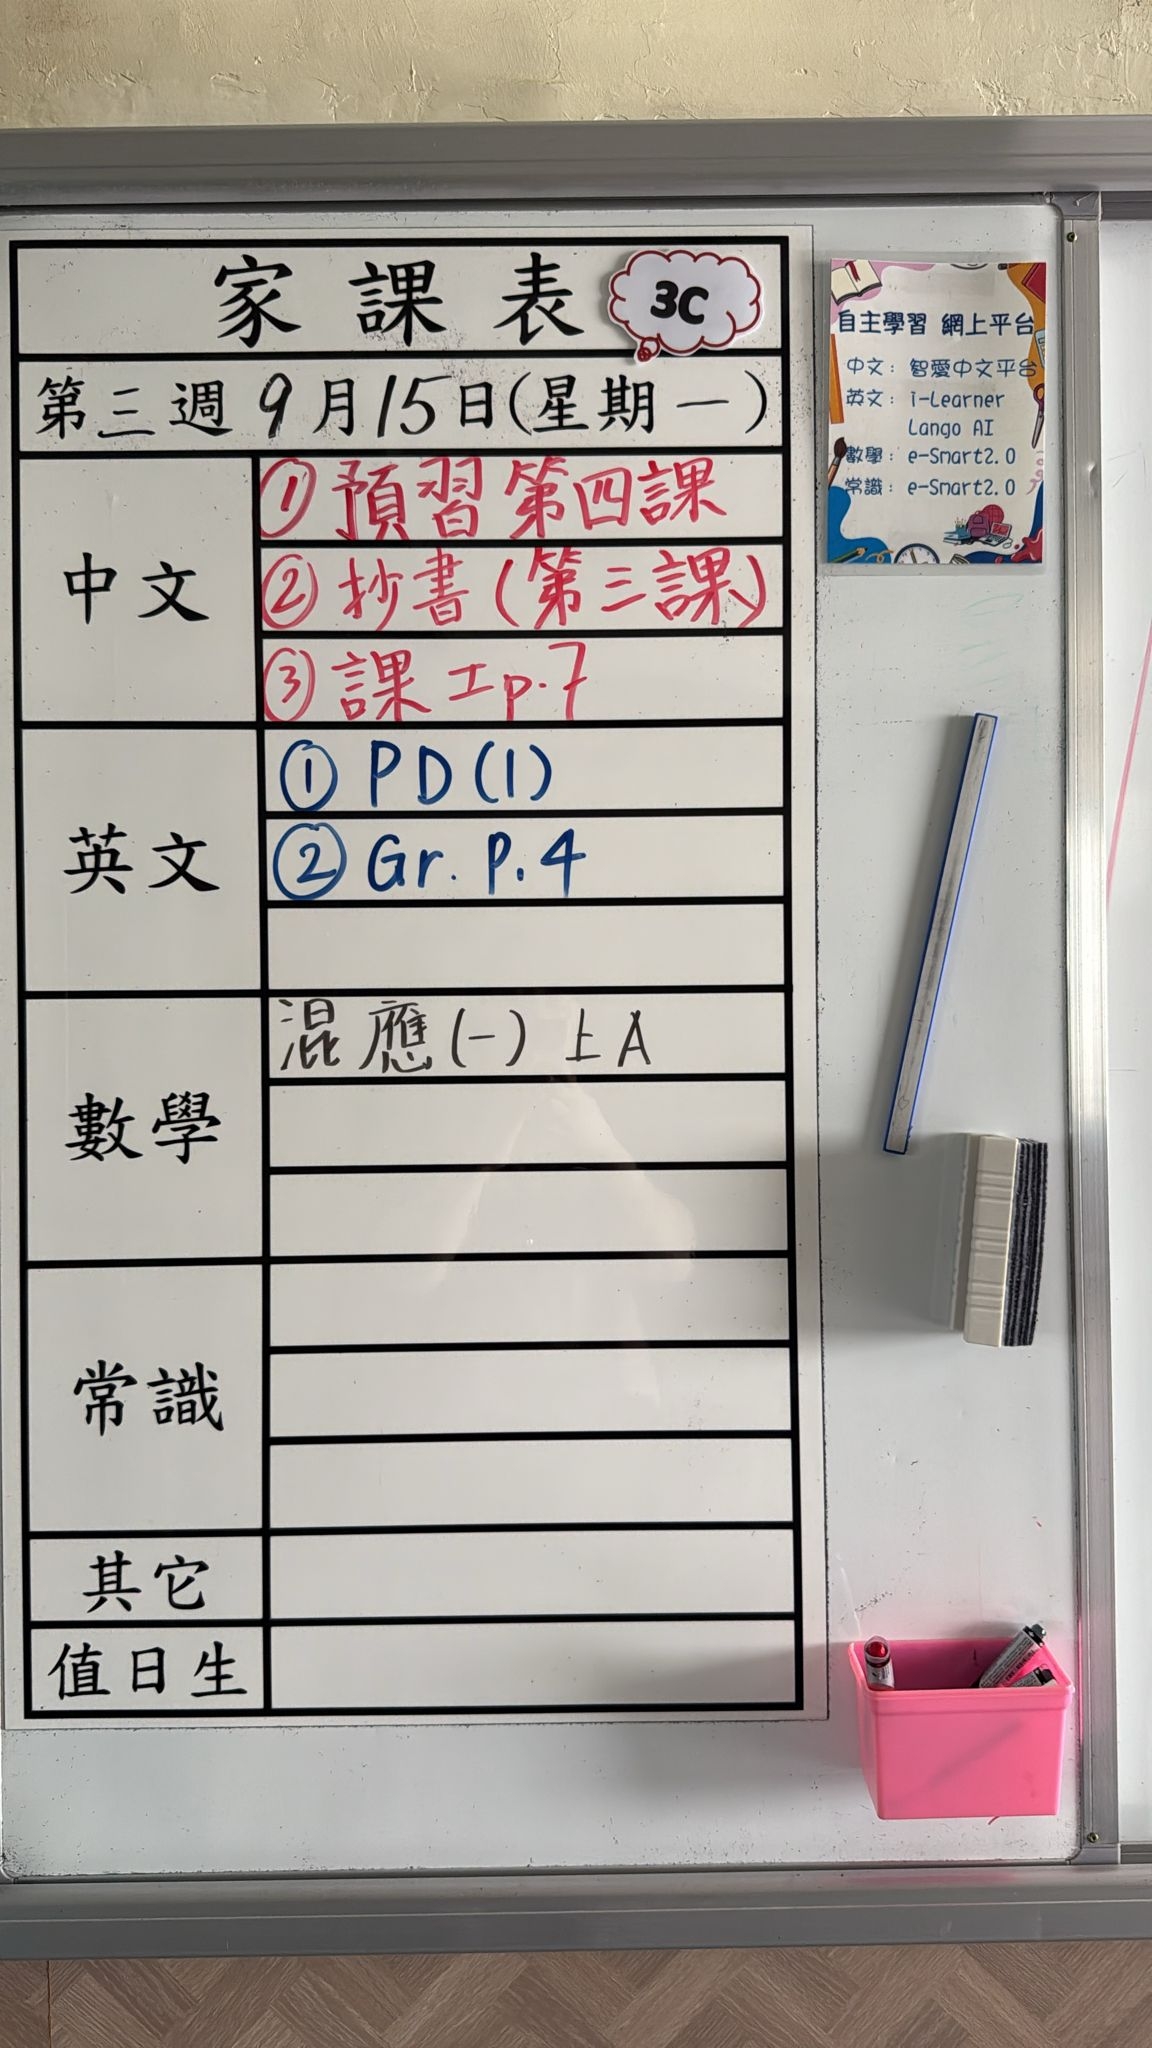 家課表 3C
第三週9月15日(星期一)
中文
①預習第四課
②抄書(第三課)
③課工p.7
英文
① PD(1)
② Gr. P.4
數學
混應(一)上A
常識
其它
值日生
自主學習 網上平台
中文：智愛中文平台
英文：i-Learner
Lango AI
數學：e-Smart2.0
常識：e-Smart2.0